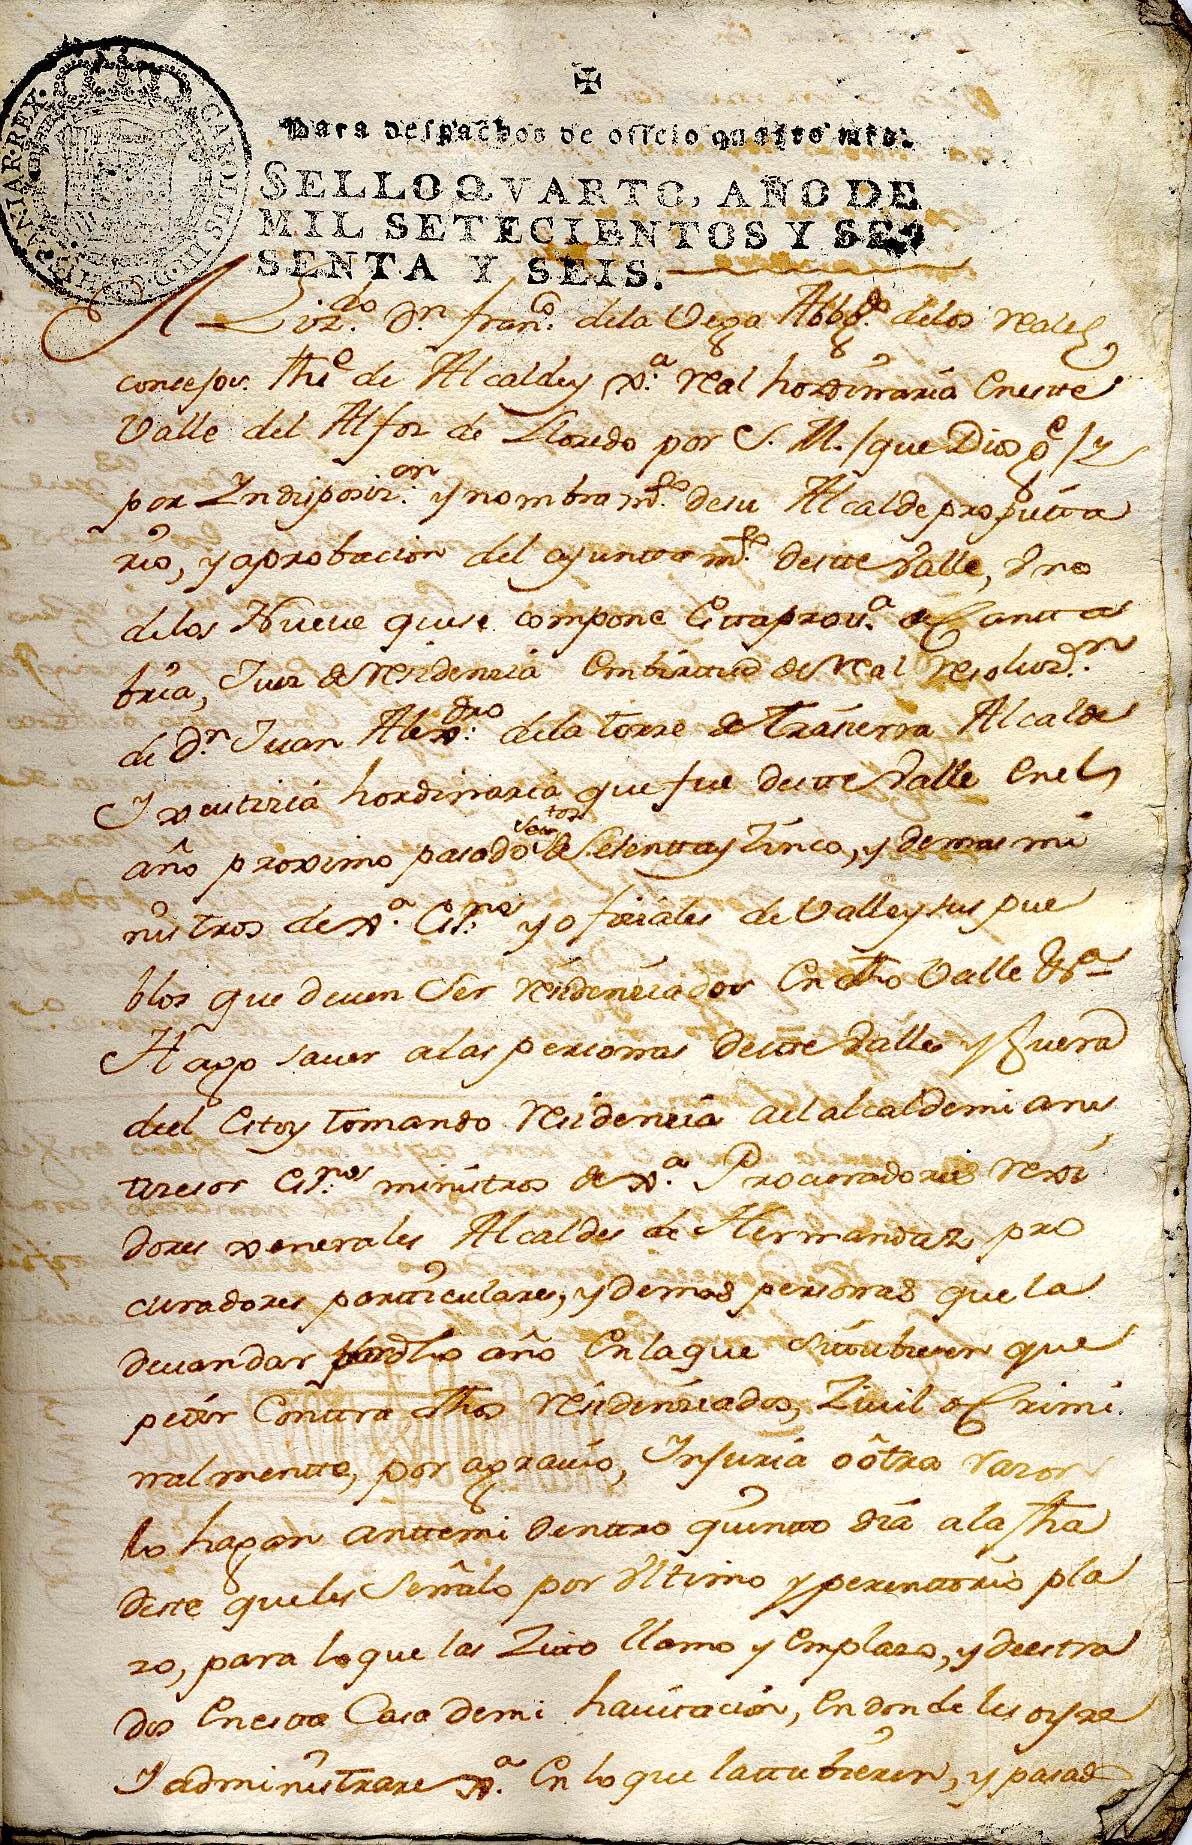 CAROLUS III. D. G. HISPANIAR. REX.
✠
Para despachos de oficio quatro mrs.
SELLO QVARTO, AÑO DE
MIL SETECIENTOS Y SE-
SENTA Y SEIS.
Lizdo. Dn. franco. dela Vega Abbgdo. delos reales
consejos. the. de Alcalde y Xa. real hordinaria Eneste
Valle del Alfoz de Lloredo por S. M. /que Dios ge/ y
por Yndiposizon. y nombramto. desu Alcalde propietta
rio, y aprobacion del ayuntamto. destte Valle, Vno
delos Nueve quese compone Esttaprova. de Cantta
bria, Juez de residencia Enbirtud de real resoluzon.
de Dn. Juan Alexdro. dela torre de Trasierra Alcalde
Y Xusticia hordinaria que fue destte Valle Enel
año proximo pasado de setos. Sesentta y Zinco, y demas mi
nistros de Xa. Essnos. y oficiales de Valle y sus pue
blos que deven Ser residenciados En dho Valle &a
Hago saver alas personas destte Valle y fuera
deel Estoy tomando residencia aelalcalde mi antez
tezesor Essnos. ministros de Xa. Procuradores rexi
dores xenerales Alcaldes de Hermandaz pro
curadores partticulares, y demas personas que la
devan dar dho año Enlaque Situbieren que
pedir Conttra dhos residenciados, Zivil o Crimi
nalmentte, por agravio, Ynjuria o otra razon
lo hagan anttemi denttro quintto dia ala fha
deste queles Señalo por Vltimo y perenttorio pla
zo, para loque las Zitto llamo y Emplazo, y deestra
dos Enestta Casa demi havitacion, Endonde les oyre
Y administrare Xa. En lo que lattubieren, y pasado